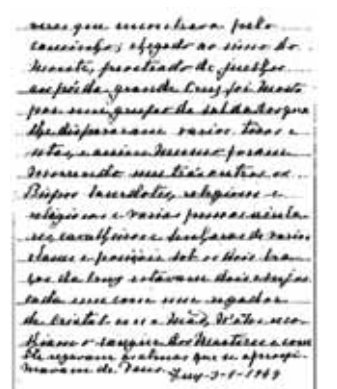 meras que encontrava pelo
caminho; chegado ao cimo do
monte, prostrado de juelhos
aos pés da grande Cruz foi morto
por um grupo de soldados que
lhe dispararam varios tiros e
setas, e assim mesmo foram
morrendo uns trás outros os
Bispos Sacerdotes, religiosos e
religiosas e varias pessoas secula-
res, cavalheiros e senhoras de varias
classes e posições. Sob os dois bra-
ços da Cruz estavam dois Anjos
cada um com um regador
de cristal em a mão, n'êles reco-
lhiam o sangue dos Martires e com
êle regavam as almas que se aproxi-
mavam de Deus.
Tuy-3-1-1944